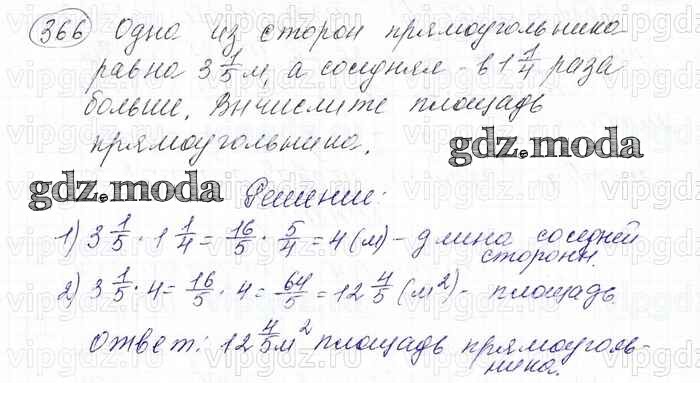 366 Одна из сторон прямоугольника
равна 3 1/5 м, а соседняя - в 1 1/4 раза
больше. Вычислите площадь
прямоугольника.
gdz.moda
gdz.moda
Решение:
1) 3 1/5 · 1 1/4 = 16/5 · 5/4 = 4 (м) - длина соседней
стороны.
2) 3 1/5 · 4 = 16/5 · 4 = 64/5 = 12 4/5 (м²) - площадь
Ответ: 12 4/5 м² площадь прямоуголь-
ника.